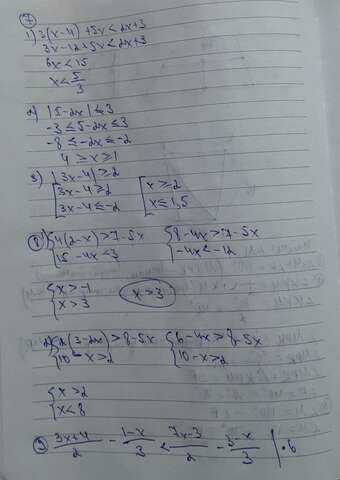 7
1) 3(x-4)+5x<2x+3
3x-12+5x<2x+3
6x<15
x<5/3
2) |5-2x|≤3
-3≤5-2x≤3
-8≤-2x≤-2
4≥x≥1
3) |3x-4|≥2
[3x-4≥2 [x≥-2
[3x-4≤-2 [x≤1,5
8 1) {4(2-x)>7-5x {8-4x>7-5x
{15-4x<3 {-4x<-12
{x>-1
{x>3 x>3
2) {2(3-2x)>8-5x {6-4x>8-5x
{10-x>2 {10-x>2
{x>2
{x<8
9 (3x+4)/2 - (1-x)/3 < (7x-3)/2 - (3-x)/3 |·6